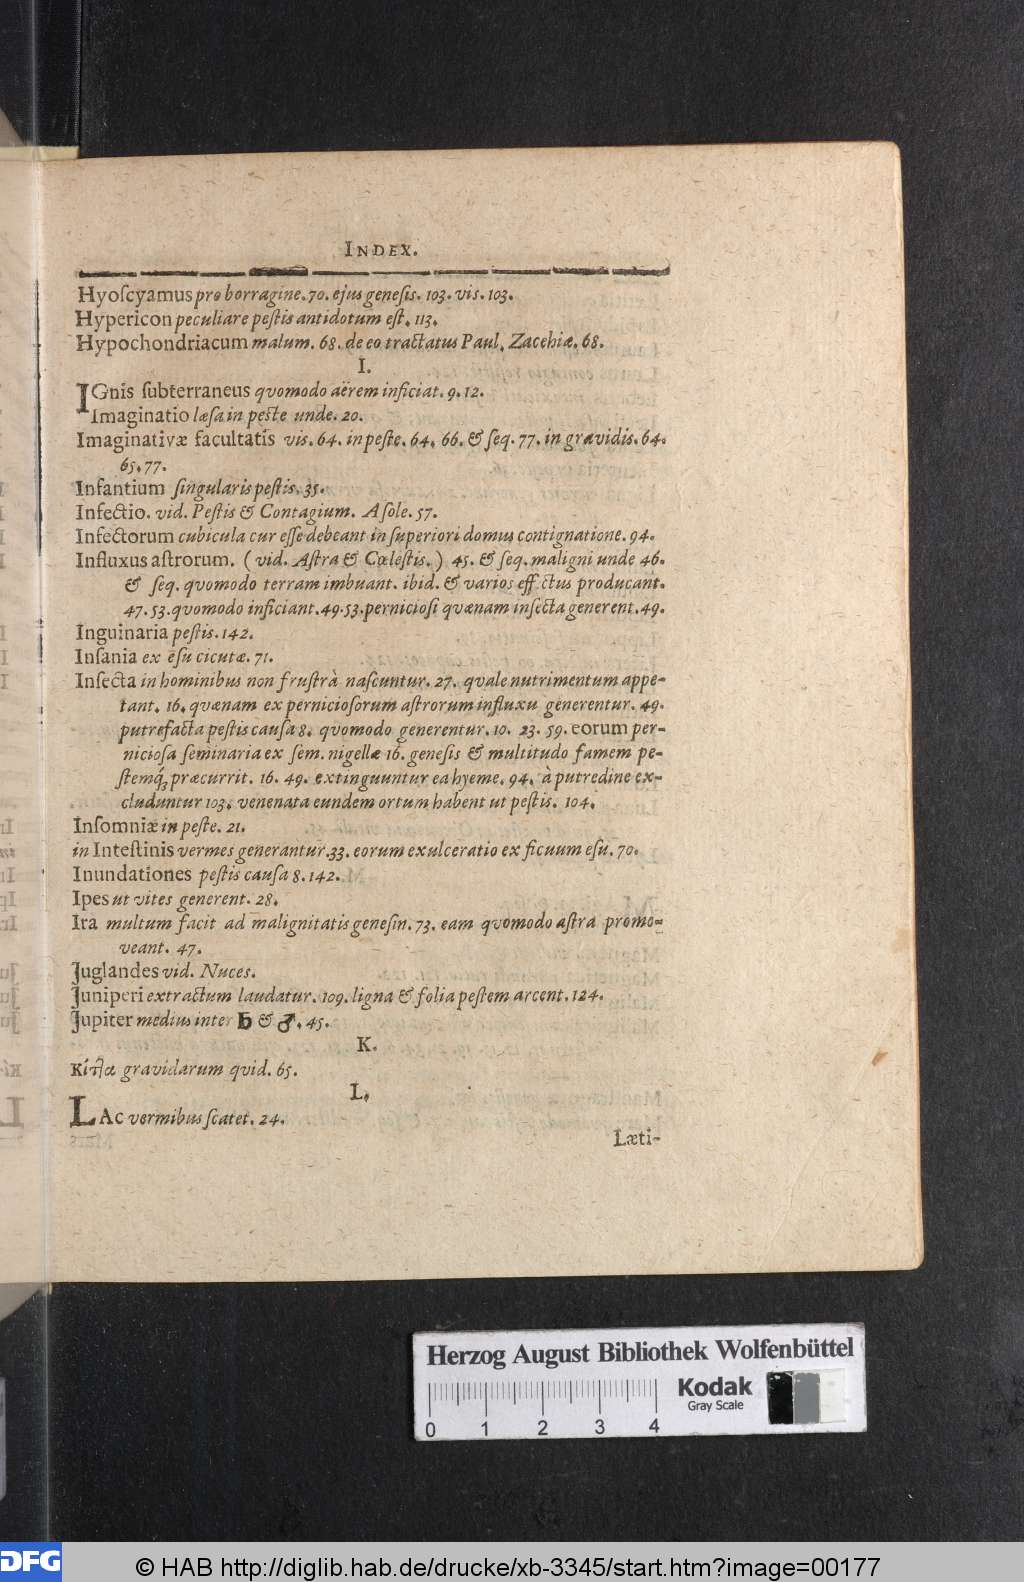 INDEX.
Hyoſcyamus pro borragine. 70. ejus geneſis. 103. vis. 103.
Hypericon peculiare peſtis antidotum eſt. 113.
Hypochondriacum malum. 68. de eo tractatus Paul. Zacchiæ. 68.
I.
IGnis ſubterraneus quomodo aërem inficiat. 9. 12.
Imaginatio læſa in peſte unde. 20.
Imaginativæ facultatis vis. 64. in peſte. 64. 66. & ſeq. 77. in grævidis. 64.
65. 77.
Infantium ſingularis peſtis. 35.
Infectio. vid. Peſtis & Contagium. A ſole. 57.
Infectorum cubicula cur eſſe debeant in ſuperiori domus contignatione. 94.
Influxus aſtrorum. (vid. Aſtra & Cœleſtis.) 45. & ſeq. maligni unde 46.
& ſeq. quomodo terram imbuant. ibid. & varios eff ctus producant.
47. 53. quomodo inficiant. 49. 53. pernicioſi quænam inſecta generent. 49.
Inguinaria peſtis. 142.
Inſania ex eſu cicutæ. 71.
Inſecta in hominibus non fruſtrà naſcuntur. 27. quale nutrimentum appe-
tant. 16. quænam ex pernicioſorum aſtrorum influxu generentur. 49.
putrefacta peſtis cauſa 8. quomodo generentur. 10. 23. 59. eorum per-
nicioſa ſeminaria ex ſem. nigellæ 16. geneſis & multitudo famem pe-
ſtemq́ꝫ præcurrit. 16. 49. extinguuntur ea hyeme. 94. à putredine ex-
cluduntur 103. venenata eundem ortum habent ut peſtis. 104.
Inſomniæ in peſte. 21.
in Inteſtinis vermes generantur. 33. eorum exulceratio ex ficuum eſu. 70.
Inundationes peſtis cauſa 8. 142.
Ipes ut vites generent. 28.
Ira multum facit ad malignitatis geneſin. 73. eam quomodo aſtra promo-
veant. 47.
Juglandes vid. Nuces.
Juniperi extractum laudatur. 109. ligna & folia peſtem arcent. 124.
Jupiter medius inter ♄ & ♂. 45.
K.
Κίτ]α gravidarum quid. 65.
L.
LAc vermibus ſcatet. 24.
Læti-
Herzog August Bibliothek Wolfenbüttel
Kodak
Gray Scale
0 1 2 3 4
DFG © HAB http://diglib.hab.de/drucke/xb-3345/start.htm?image=00177